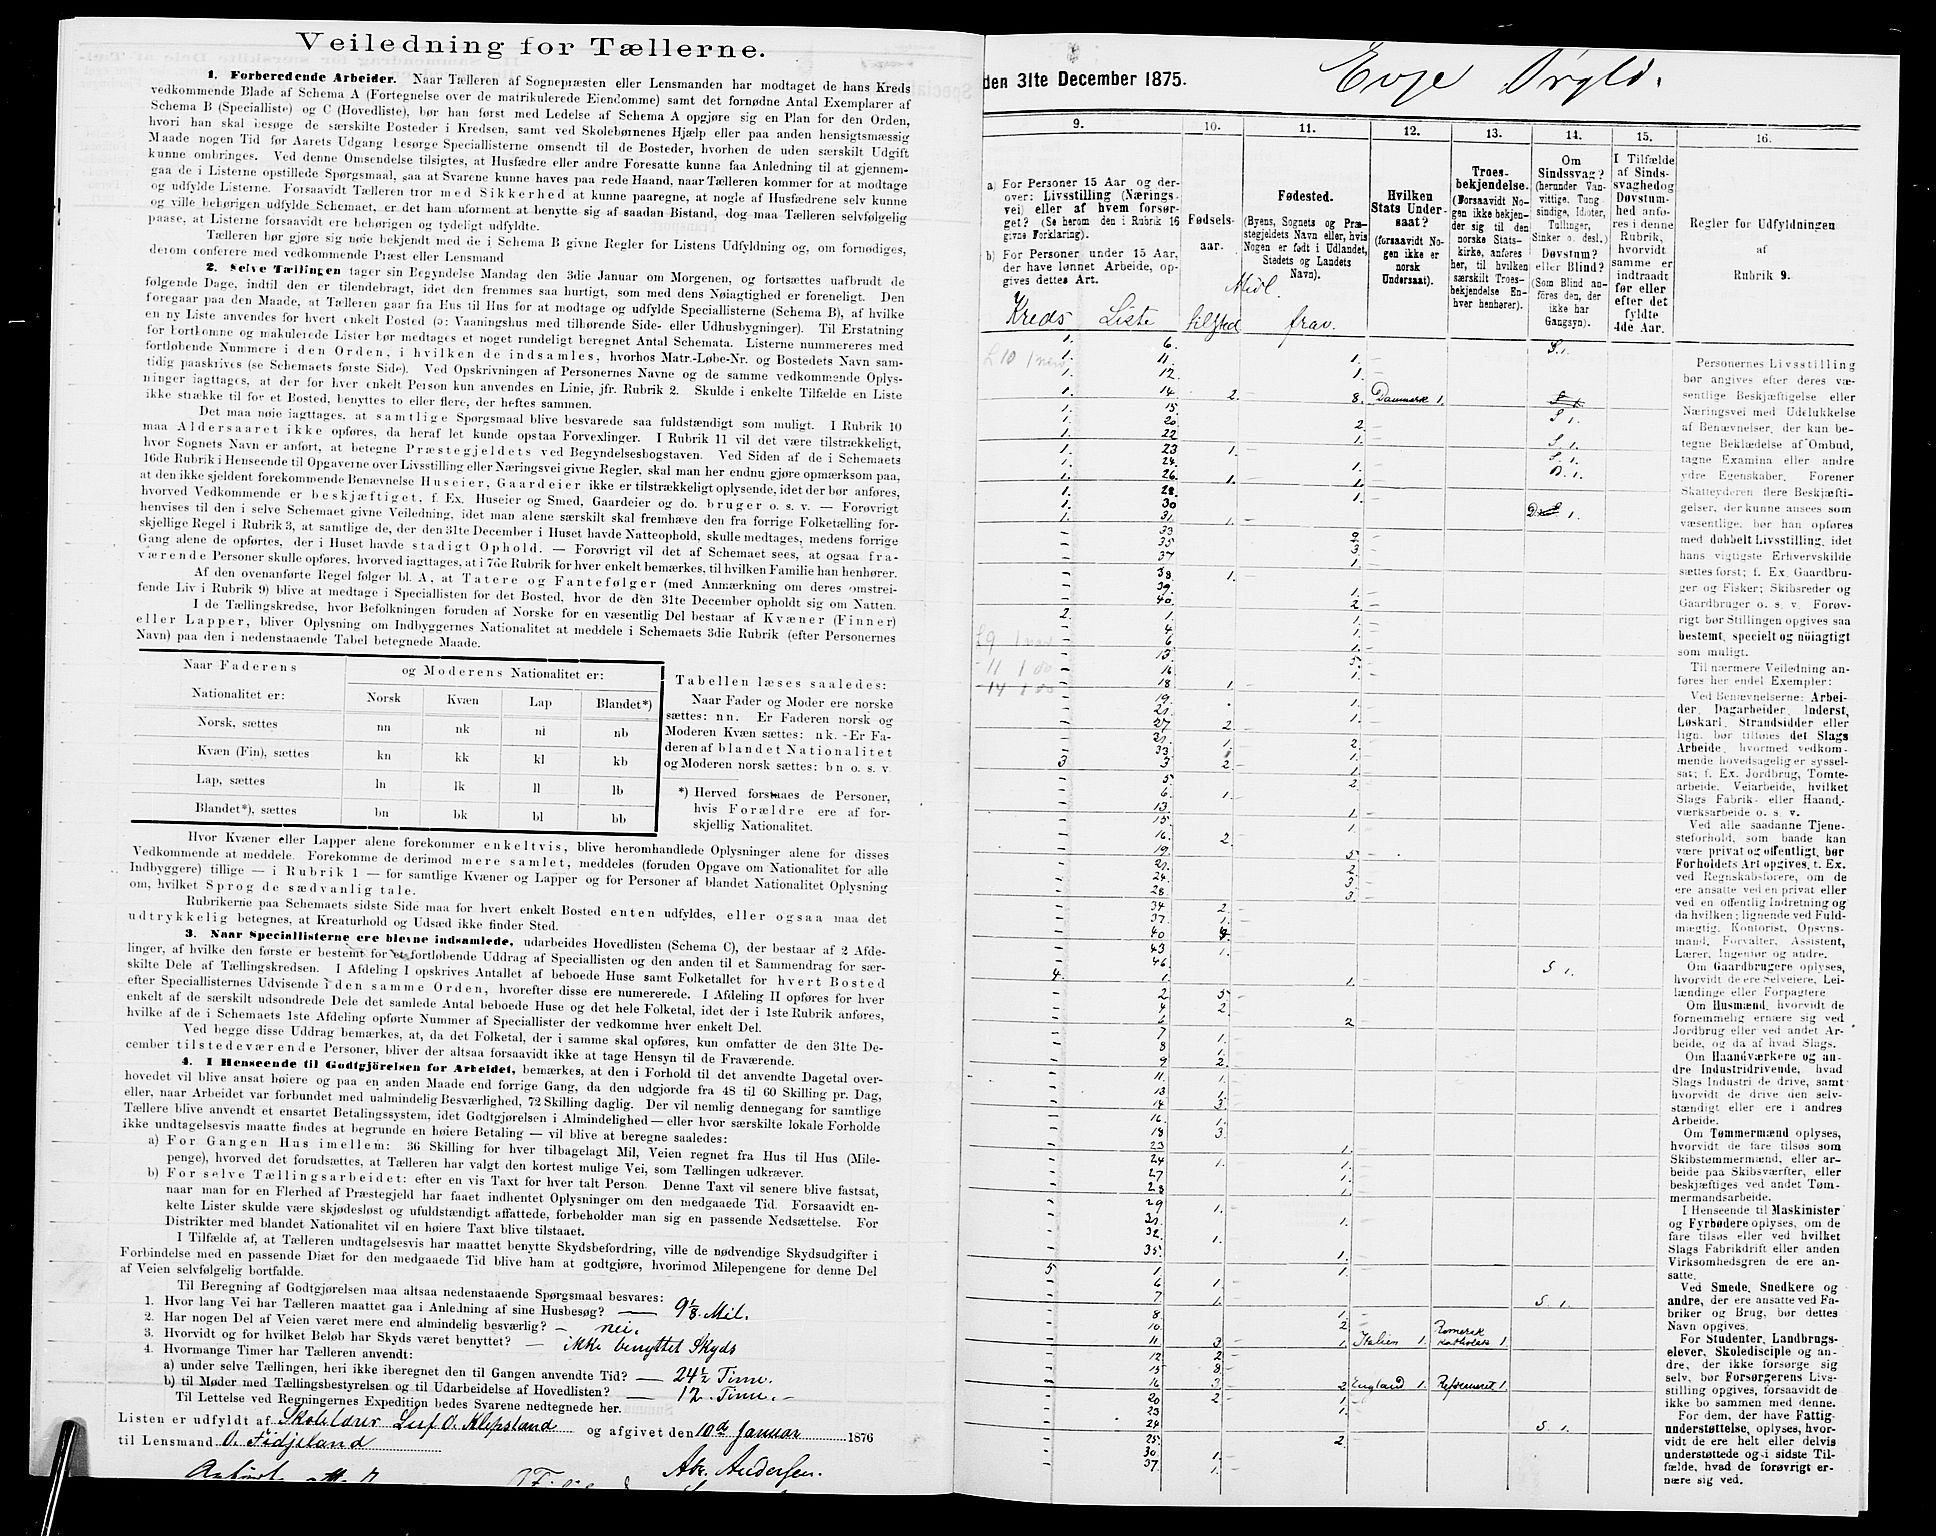 Veiledning for Tællerne.
1. Forberedende Arbeider. Naar Tælleren af Sognepræsten eller Lensmanden har modtaget de hans Kreds
vedkommende Blade af Schema A (Fortegnelse over de matrikulerede Eiendomme) samt det fornødne Antal Exemplarer af
Schema B (Specialliste) og C (Hovedliste), bør han først med Ledelse af Schema A opgjøre sig en Plan for den Orden,
hvori han skal besøge de særskilte Bosteder i Kredsen, samt ved Skolebørnenes Hjælp eller paa anden hensigtsmæssig
Maade nogen Tid før Aarets Udgang besørge Speciallisterne omsendt til de Bosteder, hvorhen de uden særskilt Udgift
kunne ombringes. Ved denne Omsendelse tilsigtes, at Husfædre eller andre Foresatte kunne faa Anledning til at gjennem-
gaa de i Listerne opstillede Spørgsmaal, saa at Svarene kunne haves paa rede Haand, naar Tælleren kommer for at modtage
og udfylde Listerne. Forsaavidt Tælleren tror med Sikkerhed at kunne paaregne, at nogle af Husfædrene selv kunne
og ville behørigen udfylde Schemaet, er det ham uforment at benytte sig af saadan Bistand, dog maa Tælleren selvfølgelig
paase, at Listerne forsaavidt ere behørigen og tydeligt udfyldte.
Tælleren bør gjøre sig nøie bekjendt med de i Schema B givne Regler for Listens Udfyldning og, om fornødiges,
derom conferere med vedkommende Præst eller Lensmand
2. Selve Tællingen tager sin Begyndelse Mandag den 3die Januar om Morgenen, og fortsættes uafbrudt de
følgende Dage, indtil den er tilendebragt, idet den fremmes saa hurtigt, som med dens Nøiagtighed er foreneligt. Den
foregaar paa den Maade, at Tælleren gaar fra Hus til Hus for at modtage og udfylde Speciallisterne (Schema B), af hvilke
en ny Liste anvendes for hvert enkelt Bosted (ɔ: Vaaningshus med tilhørende Side- eller Udhusbygninger). Til Erstatning
for bortkomne og makulerede Lister bør medtages et noget rundeligt beregnet Antal Schemata. Listerne nummereres med
fortløbende Nummere i den Orden, i hvilken de indsamles, hvorhos Matr.-Løbe-Nr. og Bostedets Navn sam-
tidig paaskrives (se Schemaets første Side). Ved Opskrivningen af Personernes Navne og de samme vedkommende Oplys-
ninger iagttages, at der for hver enkelt Person kun anvendes en Linie, jfr. Rubrik 2. Skulde i enkelte Tilfælde en Liste
ikke strække til for et Bosted, benyttes to eller flere, der heftes sammen.
Det maa nøie iagttages, at samtlige Spørgsmaal blive besvarede saa fuldstændigt som muligt. I Rubrik 10
maa Aldersaaret ikke opføres, da heraf let kunde opstaa Forvexlinger. I Rubrik 11 vil det være tilstrækkeligt,
hvor Sognets Navn er anført, at betegne Præstegjeldets ved Begyndelsesbogstaven. Ved Siden af de i Schemaets
16de Rubrik i Henseende til Opgaverne over Livsstilling eller Næringsvei givne Regler, skal man her endnu gjøre opmærksom paa,
at den ikke sjeldent forekommende Benævnelse Huseier, Gaardeier ikke er tilstrækkeligt oplysende, idet der bør anføres,
hvorved Vedkommende er beskjæftiget, f. Ex. Huseier og Smed, Gaardeier og do. bruger o. s. v. — Forøvrigt
henvises til den i selve Schemaet givne Veiledning, idet man alene særskilt skal fremhæve den fra forrige Folketælling for-
skjellige Regel i Rubrik 3, at samtlige de, der den 31te December i Huset havde Natteophold, skulle medtages, medens forrige
Gang alene de opførtes, der i Huset havde stadigt Ophold. — Forøvrigt vil det af Schemaet sees, at ogsaa fra-
værende Personer skulle opføres, hvorved iagttages, at i 7de Rubrik for hver enkelt bemærkes, til hvilken Familie han henhører.
Af den ovenanførte Regel følger bl. A., at Tatere og Fantefølger (med Anmærkning om deres omstrei-
fende Liv i Rubrik 9) blive at medtage i Speciallisten for det Bosted, hvor de den 31te December opholdt sig om Natten.
I de Tællingskredse, hvor Befolkningen foruden af Norske for en væsentlig Del bestaar af Kvæner (Finner)
eller Lapper, bliver Oplysning om Indbyggernes Nationalitet at meddele i Schemaets 3die Rubrik (efter Personernes
Navn) paa den i nedenstaaende Tabel betegnede Maade.
Naar Faderens
Nationalitet er:
og Moderens Nationalitet er:
Norsk Kvæn Lap Blandet*)
Norsk, sættes nn nk nl nb
Kvæn (Fin), sættes kn kk kl kb
Lap, sættes ln lk ll lb
Blandet*), sættes bn bk bl bb
Tabellen læses saaledes:
Naar Fader og Moder ere norske
sættes: nn. Er Faderen norsk og
Moderen Kvæn sættes: nk. Er Fa-
deren af blandet Nationalitet
og Moderen norsk sættes: bn o. s. v.
*) Herved forstaaes de Personer,
hvis Forældre ere af for-
skjellig Nationalitet.
Hvor Kvæner eller Lapper alene forekommer enkeltvis, blive heromhandlede Oplysninger alene for disses
Vedkommende at meddele. Forekomme de derimod mere samlet, meddeles (foruden Opgave om Nationalitet for alle
Indbyggere) tillige — i Rubrik 1 — for samtlige Kvæner og Lapper og for Personer af blandet Nationalitet Oplysning
om, hvilket Sprog de sædvanlig tale.
Rubrikerne paa Schemaets sidste Side maa for hvert enkelt Bosted enten udfyldes, eller ogsaa maa det
udtrykkelig betegnes, at Kreaturhold og Udsæd ikke finder Sted.
3. Naar Speciallisterne ere blevne indsamlede, udarbeides Hovedlisten (Schema C), der bestaar af 2 Afde-
linger, af hvilke den første er bestemt for et fortløbende Uddrag af Speciallisten og den anden til et Sammendrag for sær-
skilte Dele af Tællingskredsen. I Afdeling I opskrives Antallet af beboede Huse samt Folketallet for hvert Bosted
efter Speciallisternes Udvisende i den samme Orden, hvorefter disse ere numererede. I Afdeling II opføres for hver
enkelt af de særskilt udsondrede Dele det samlede Antal beboede Huse og det hele Folketal, idet der i 1ste Rubrik anføres,
hvilke af de i Schemaets 1ste Afdeling opførte Nummer af Speciallister der vedkomme hver enkelt Del.
Ved begge disse Uddrag bemærkes, at, da det Folketal, der i samme skal opføres, kun omfatter de den 31te De-
cember tilstedeværende Personer, bliver der altsaa forsaavidt ikke at tage Hensyn til de Fraværende.
4. I Henseende til Godtgjörelsen for Arbeidet, bemærkes, at den i Forhold til det anvendte Dagetal over-
hovedet vil blive ansat høiere og paa en anden Maade end forrige Gang, da den udgjorde fra 48 til 60 Skilling pr. Dag,
eller, naar Arbeidet var forbundet med ualmindelig Besværlighed, 72 Skilling daglig. Der vil nemlig dennegang for samtlige
Tællere blive anvendt et ensartet Betalingssystem, idet Godtgjørelsen i Almindelighed — eller hvor særskilte lokale Forholde
ikke undtagelsesvis maatte findes at begrunde en høiere Betaling — vil blive at beregne saaledes:
a) For Gangen Hus imellem: 36 Skilling for hver tilbagelagt Mil, Veien regnet fra Hus til Hus (Mile-
penge), hvorved det forudsættes, at Tælleren har valgt den kortest mulige Vei, som Tællingen udkræver.
b) For selve Tællingsarbeidet: efter en vis Taxt for hver talt Person. Denne Taxt vil senere blive fastsat,
naar man for en Flerhed af Præstegjeld har faaet indhentet Oplysninger om den medgaaede Tid. Forsaavidt en-
kelte Lister skulde være skjødesløst og ufuldstændigt affattede, forbeholder man sig en passende Nedsættelse. For
Distrikter med blandet Nationalitet vil en høiere Taxt blive tilstaaet.
I Tilfælde af, at Tælleren undtagelsesvis har maattet benytte Skydsbefordring, ville de nødvendige Skydsudgifter i
Forbindelse med en passende Diæt for den medgaaede Tid blive ham at godtgjøre, hvorimod Milepengene for denne Del
af Veien selvfølgelig bortfalde.
Til Beregning af Godtgjørelsen maa altsaa nedenstaaende Spørgsmaal besvares:
1. Hvor lang Vei har Tælleren maattet gaa i Anledning af sine Husbesøg? — 9 1/8 Mil.
2. Har nogen Del af Veien været mere end almindelig besværlig? — nei.
3. Hvorvidt og for hvilket Beløb har Skyds været benyttet? — ikke benyttet Skyds
4. Hvormange Timer har Tælleren anvendt:
a) under selve Tællingen, heri ikke iberegnet den til Gangen anvendte Tid? — 24 1/2 Time.
b) til Møder med Tællingsbestyrelsen og til Udarbeidelse af Hovedlisten? — 12 Time. —
Til Lettelse ved Regningernes Expedition bedes Svarene nedtegnede her.
Listen er udfyldt af Leif O. Klepsland og afgivet den 10de Januar 1876
til Lensmand O. Fidjeland
Ak. Andersen.
den 31te December 1875. Evje
9. 10. 11. 12. 13. 14. 15. 16.
a) For Personer 15 Aar og der-
over: Livsstilling (Nærings-
vei) eller af hvem forsør-
get? (Se herom den i Rubrik 16
givne Forklaring).
b) For Personer under 15 Aar,
der have lønnet Arbeide, op-
gives dettes Art.
Fødsels-
aar.
Fødested.
(Byens, Sognets og Præ-
stegjeldets Navn eller, hvis
Nogen er født i Udlandet,
Stedets og Landets
Navn).
Hvilken
Stats Under-
saat?
(forsaavidt No-
gen ikke er
norsk
Undersaat).
Troes-
bekjendelse.
(Forsaavidt No-
gen ikke bekjen-
der sig til den
norske Stats-
kirke, anføres
her, til hvilken
særskilt Troes-
bekjendelse En-
hver henhører).
Om
Sindssvag?
(herunder Van-
vittige, Tung-
sindige, Idioter,
Tullinger,
Sinker o. desl.)
Døvstum?
eller Blind?
(Som Blind an-
føres den, der
ikke har
Gangsyn).
I Tilfælde
af Sinds-
svaghed og
Døvstum-
hed anfø-
res i denne
Rubrik,
hvorvidt
samme er
indtraadt
før eller
efter det
fyldte
4de Aar.
Regler for Udfyldningen
af
Rubrik 9.
Midl.
Kreds Liste tilsted frav.
1. 6. S. 1.
1. 11. 1.
1. 12. 1.
1. 14. 2. 8. Danmark 1.
1. 15. S 1.
1. 20 2.
1. 22 1. S 1.
1. 23 1. S. 1.
1. 24. 1. D. 1.
1. 26. 1. 1.
1. 28. 1.
1. 30 1.
1. 31. 1.
33 2.
35 3.
37 1.
38. 1.
39. 1.
40. 2.
2. 1. 1.
4. 1.
6 1.
13. 5.
16 1.
18 1.
19. 1.
21. 1.
27 2.
31. 1. 2.
33. 1.
3 3. 2. 1.
5. 2
6. 1.
13. 1.
15. 1.
16. 2.
19. 5
21. 2
24. 3
28. 3.
34 2.
37 1.
40
43 1.
46. S 1.
4. 1. 1.
2. 5
4 2.
6 2
7 1.
8 1.
9 2.
11. 1.
13 1.
14 3.
16 1.
18 3.
23 1.
24 1. 1.
27 1.
28 1.
29 1.
31. 1.
32. 1.
35. 1.
5 1. 1.
6 1.
7 1. S. 1.
8 1.
10. 2
11 3 1. Italien 1. Romersk katholsk 1
12 2
15 8
16 3 2 England 1. Reformeret 1.
20 2 1
23 1.
24 S 1.
25 2
30. 1.
37. 1.
Personernes Livsstilling
bør angives efter deres væ-
sentlige Beskjæftigelse eller
Næringsvei med Udelukkelse
af Benævnelser, der kun be-
tegne Beklædelse af Ombud,
tagne Examina eller andre
ydre Egenskaber. Forener
Skatteyderen flere Beskjæfti-
gelser, der kunne ansees som
væsentlige, bør han opføres
med dobbelt Livsstilling, idet
hans vigtigste Erhvervskilde
sættes først; f. Ex. Gaardbru-
ger og Fisker; Skibsreder og
Gaardbruger o. s. v. Forøv-
rigt bør Stillingen opgives saa
bestemt, specielt og nöiagtigt
som muligt.
Til nærmere Veiledning an-
føres her endel Exempler:
Ved Benævnelserne: Arbei-
der, Dagarbeider, Inderst,
Løskarl, Strandsidder eller
lign. bør tilføies det Slags
Arbeide, hvormed vedkom-
mende hovedsagelig er syssel-
sat; f. Ex. Jordbrug, Tomte-
arbeide, Veiarbeide, hvilket
Slags Fabrik- eller Haand-
værksarbeide o. s. v.
Ved alle saadanne Tjene-
steforhold, som baade kan
være privat og offentligt, bør
Forholdets Art opgives, t. Ex.
ved Regnskabsførere, om de
ere ansatte ved en privat eller
ved en offentlig Indretning og
da hvilken; lignende ved Fuld-
mægtig, Kontorist, Opsyns-
mand, Forvalter, Assistent,
Lærer, Ingeniør og andre.
Om Gaardbrugere oplyses,
hvorvidt de ere Selveiere, Lei-
lændinge eller Forpagtere
Om Husmænd, hvorvidt de
fornemmelig ernære sig ved
Jordbrug eller ved andet Ar-
beide, og da af hvad Slags.
Om Haandværkere og an-
dre Industridrivende, hvad
Slags Industri de drive, samt
hvorvidt de drive den selv-
stændigt eller ere i andres
Arbeide.
Om Tømmermænd oplyses,
hvorvidt de fare tilsøs som
Skibstømmermænd, eller ar-
beide paa Skibsværfter, eller
beskjæftiges ved andet Tøm-
mermandsarbeide.
I Henseende til Maskinister
og Fyrbødere oplyses, om de
fare tilsøs eller ved hvilket
Slags Fabrikdrift eller anden
Virksomhedsgren de ere an-
satte.
Ved Smede, Snedkere og
andre, der ere ansatte ved Fa-
briker og Brug, bør dettes
Navn opgives.
For Studenter, Landbrugs-
elever, Skoledisciple og an-
dre, der ikke forsørge sig
selv, bør Forsørgerens Livs-
stilling opgives, forsaavidt de
ikke bo sammen med denne.
For dem, der have Fattig-
understøttelse, oplyses, hvor-
vidt de ere helt eller delvis
understøttede og i sidste Til-
fælde, hvad de forøvrigt er-
nære sig ved.